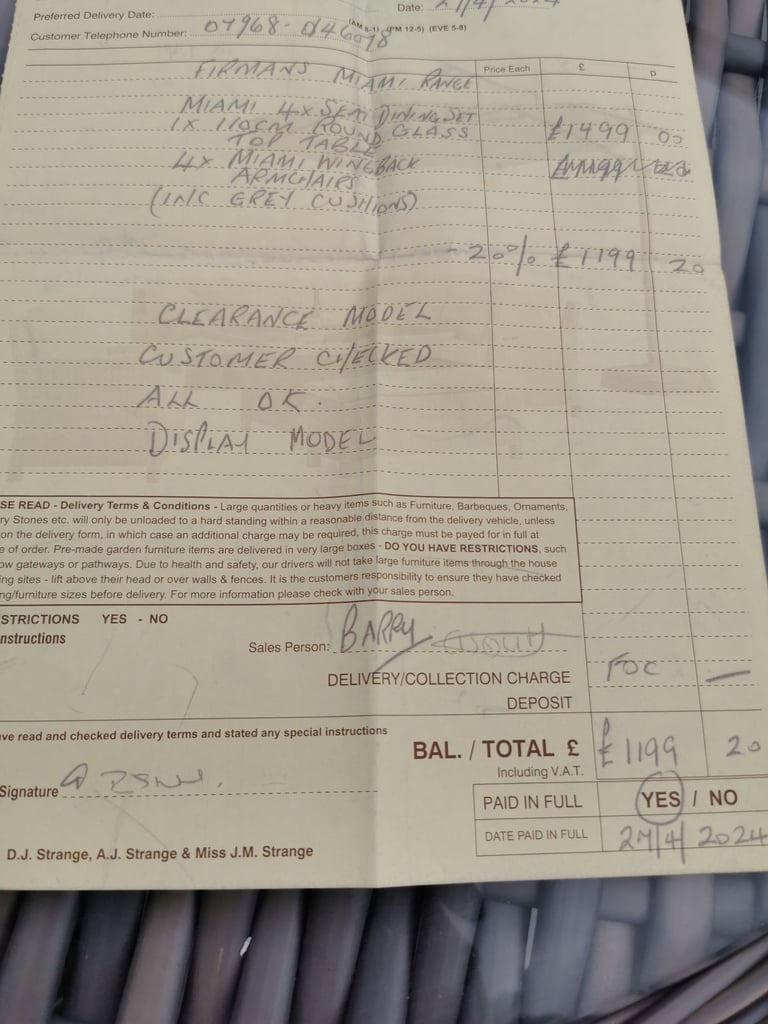 Date: 27/4/2024
Preferred Delivery Date:
(AM 8-1) (PM 12-5) (EVE 5-8)
Customer Telephone Number: 07968-046098
Price Each £ p
FIRMANS MIAMI RANGE
MIAMI 4x SEAT DINING SET
1x 110CM ROUND GLASS £1499 00
TOP TABLE
4x MIAMI WINGBACK
ARMCHAIRS
(INC GREY CUSHIONS)
- 20% £1199 20
CLEARANCE MODEL
CUSTOMER CHECKED
ALL OK.
DISPLAY MODEL
SE READ - Delivery Terms & Conditions - Large quantities or heavy items such as Furniture, Barbeques, Ornaments,
ry Stones etc. will only be unloaded to a hard standing within a reasonable distance from the delivery vehicle, unless
on the delivery form, in which case an additional charge may be required, this charge must be paid for in full at
e of order. Pre-made garden furniture items are delivered in very large boxes - DO YOU HAVE RESTRICTIONS, such
ow gateways or pathways. Due to health and safety, our drivers will not take large furniture items through the house
ing sites - lift above their head or over walls & fences. It is the customers responsibility to ensure they have checked
ng/furniture sizes before delivery. For more information please check with your sales person.
STRICTIONS YES - NO
nstructions
Sales Person: BARRY
DELIVERY/COLLECTION CHARGE FOC —
DEPOSIT
ve read and checked delivery terms and stated any special instructions
BAL. / TOTAL £ £1199 20
Including V.A.T.
Signature
PAID IN FULL YES / NO
DATE PAID IN FULL 27/4/2024
D.J. Strange, A.J. Strange & Miss J.M. Strange